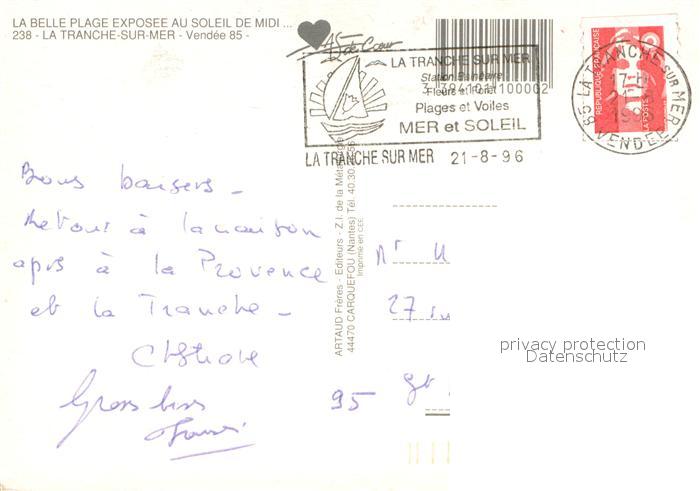 LA BELLE PLAGE EXPOSEE AU SOLEIL DE MIDI ...
238 - LA TRANCHE-SUR-MER - Vendée 85 -
AS
de Cœur
LA TRANCHE SUR MER
Station Balnéaire
Fleurs et Forêt
Plages et Voiles
MER et SOLEIL
LA TRANCHE SUR MER 21-8-96
LA TRANCHE SUR MER
17-H
85 VENDEE
REPUBLIQUE FRANÇAISE
LA POSTE
ARTAUD Frères - Editeurs - Z.I. de la Métairie
44470 CARQUEFOU (Nantes) Tél. 40.30
Imprimé en CEE
Bons baisers -
Retour à la maison
après à la Provence
et la Tranche -
Gros bises
27
95
privacy protection
Datenschutz